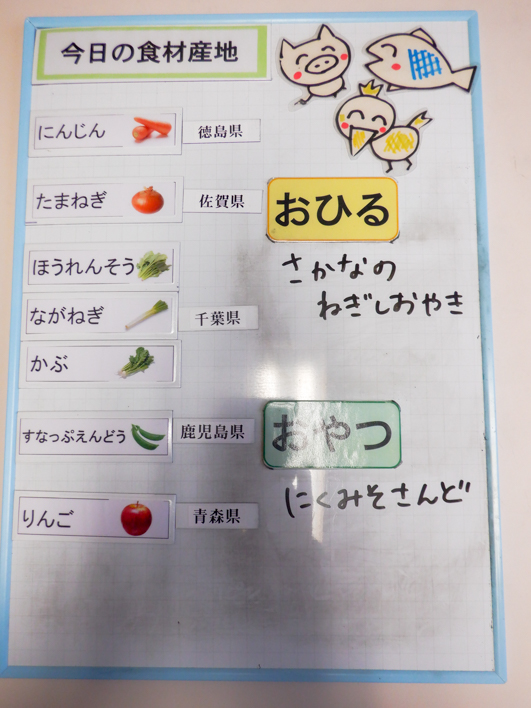 今日の食材産地
にんじん 徳島県
たまねぎ 佐賀県
ほうれんそう
ながねぎ 千葉県
かぶ
すなっぷえんどう 鹿児島県
りんご 青森県
おひる
さかなの
ねぎしおやき
おやつ
にくみそさんど